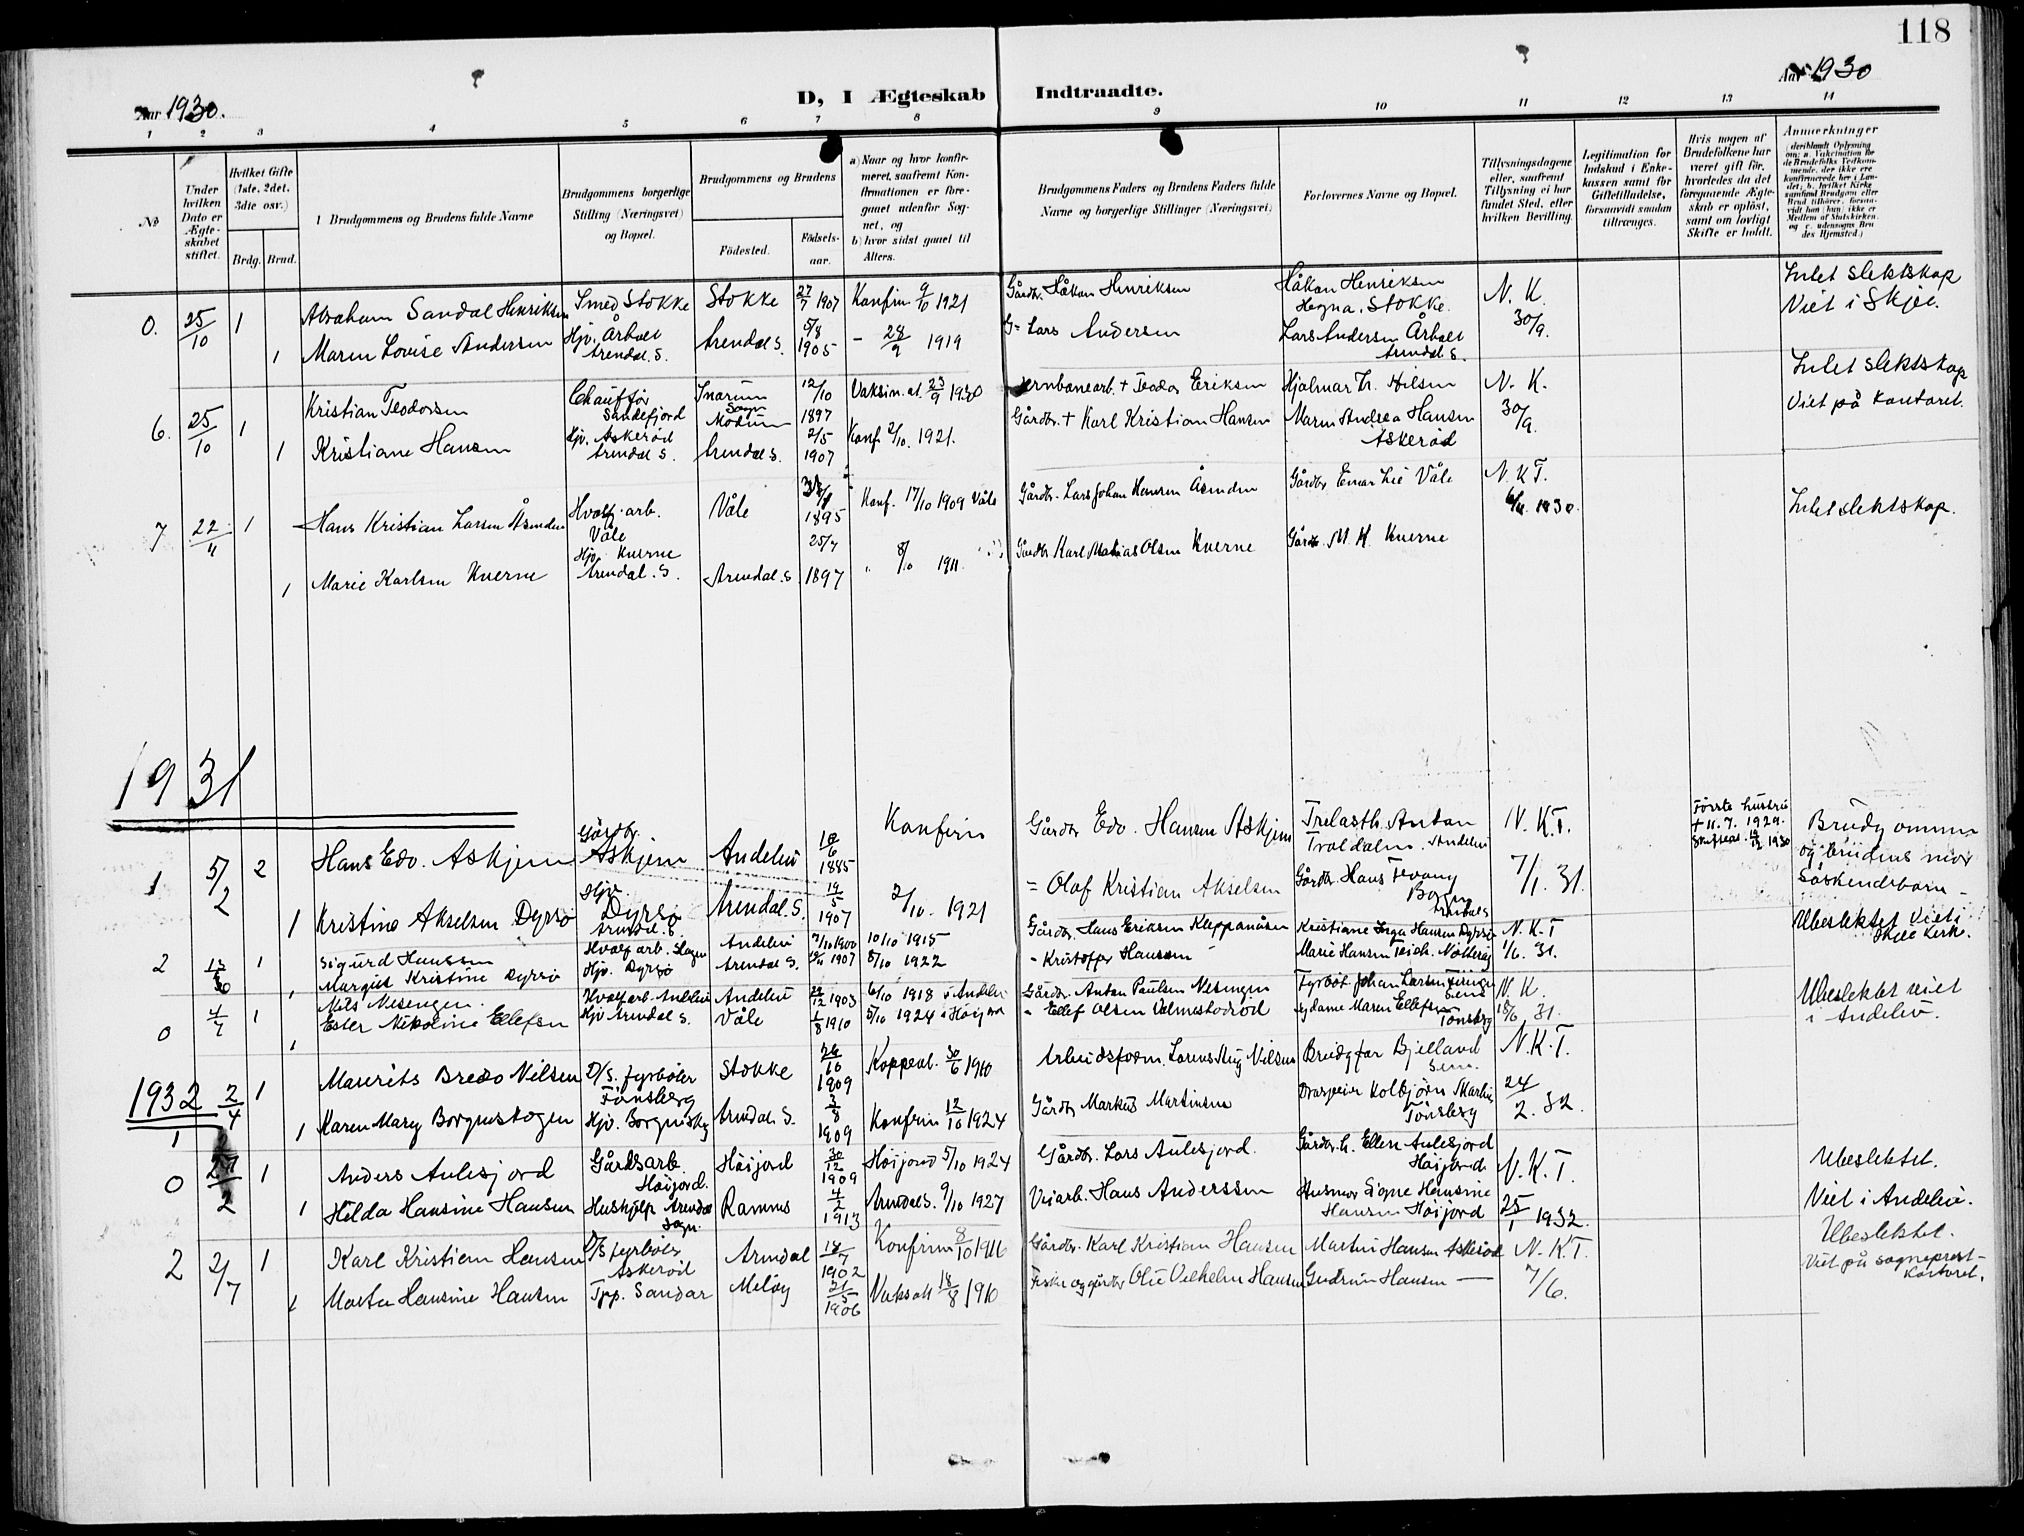 118
Aar 1930.
D, I Ægteskab Indtraadte.
Aar 1930
1 2 3 4 5 6 7 8 9 10 11 12 13 14
No
Under hvilken Dato er Ægteskabet stiftet.
Hvilket Gifte (1ste, 2det, 3die osv.)
Brdg. Brud.
1 Brudgommens og Brudens fulde Navne
Brudgommens borgerlige Stilling (Næringsvei) og Bopæl.
Brudgommens og Brudens
Fødested.
Fødselsaar.
a) Naar og hvor konfirmeret, saafremt Konfirmationen er foregaaet udenfor Sognet, og
b) hvor sidst gaaet til Alters.
Brudgommens Faders og Brudens Faders fulde Navne og borgerlige Stillinger (Næringsvei)
Forlovernes Navne og Bopæl.
Tillysningsdagene eller, saafremt Tillysning ei har fundet Sted, efter hvilken Bevilling.
Legitimation for Indskud i Enkekassen samt for Giftetilladelse, forsaavidt saadan tiltrænges.
Hvis nogen af Brudefolkene har været gift før, hvorledes da det foregaaende Ægteskab er opløst, samt om lovligt Skifte er holdt.
Anmerkninger (deriblandt Oplysning om: a. Vakcination for de Brudefolks Vedkommende, der ikke ere konfirmerede her i Landet; b. hvilket Kirkesamfund Brudgom eller Brud tilhører, forsaavidt han (hun) ikke er Medlem af Statskirken, og c. udensogns Brudes Hjemsted.)
0. 25/10 1 Abraham Sandal Henriksen Smed Stokke Stokke 27/7 1907 Konfirm 9/10 1921 Gårdbr. Håkon Henriksen Håkon Henriksen Hegna, Stokke. N. K. 30/9. Intet slektskap Viet i Skjee.
1 Maren Lovise Andersen Hjv. Årholt Arendal S. Arendal S. 5/8 1905 - 28/9 1919 G= Lars Andersen Lars Andersen Årholt Arendal S.
6. 25/10 1 Kristian Teodorsen Chauffør Sandefjord Snarum Sogn Modum 12/10 1897 Vaksin. at. 23/9 1930 Jernbanearb. + Teodor Eriksen Hjalmar Th. Nilsen N. K. 30/9. Intet slektskap Viet på kontoret.
1 Kristiane Hansen Hjv. Askerød Arendal S. Arendal S. 2/5 1907 Konf. 2/10. 1921. Gårdbr. + Karl Kristian Hansen Maren Andrea Hansen Askerød
7 22/11 1 Hans Kristian Larsen Åsmden Hvalf. arb. Våle Våle 1895 Konf. 17/10 1909 Våle Gårdbr. Lars Johan Hansen Gårdbr Einar Lie Våle N. K T. 1930. Intet slektskap.
1 Marie Karlsen Kverne Hjv. Kverne Arendal. S. Arendal. S 25/7 1897 " 8/10 1911. Gårdbr Karl Mathias Olsen Kverne Gårdbr M. K. Kverne
1931
1 5/2 2 Hans Edv. Askjem Gårdbr. Askjem Andebu 6 1885 Konfirm Gårdbr Edv. Hansen Askjem Trelasth. Anton Troldalen. Andebu N. K.T. 7/1. 31. Første hustru + 11. 7. 1929. 1930 Brudg ommens og brudens mor Søskendebarn -
1 Kristine Akselsen Dyrsø Hjv Dyrsø Arendal. S. Arendal. S. 19/5 1907 2/10. 1921 = Olaf Kristian Akselsen Gårdbr. Hans Fevang
2 1 Sigurd Hansen Hvalf arb. Slagen Andebu 7/10 1900 10/10 1915 Gårdbr. Hans Eriksen Kleppanåsen Kristiane Inga Hansen Dyrsø N. K. T 1/6. 31. Ubeslektet Viet i Skjee Kirke.
1 Margit Kristine Dyrsø Hjv. Dyrsø Arendal S. 1907 8/10 1922 - Kristoffer Hansen Marie Hansen Teich. Nøtterøy
0 4/7 1 Nils Nesengen. Hvalf arb. Andebu Andebu 22/12 1903 6/10 1918 i Andebu Gårdbr. Anton Paulsen Nesengen Fyrbøt. Johan Larsen N. K. 18/6. 31. Ubeslektet viet i Andebu.
1 Ester Nikoline Ellefsen Hjv Arendal S. Våle 1/8 1910 5/10 1924 i Høijord " Ellef Olsen Valmestadrød sydame Maren Ellefsen Tønsberg
1932 1 2/4 1 Maurits Bredo Nilsen D/S. fyrbøter Tønsberg Stokke 26/10 1909 Koppeat. 30/6 1910 Arbeidsform. Lorens Nilsen Brudg far Bjelland Sem. N. K. T. 24/2. 32.
1 Karen Mary Borgenstogen Hjv. Arendal S. 3/8 1909 Konfirm 12/10 1924 Gårdbr Markus Martinsen Drasjeeier Kolbjørn Martin Tønsberg
0 27/2 1 Anders Aulesjord Gårdsarb. Høijord. Høijord 30/12 1909 Høijord 5/10 1924 Gårdbr. Lars Aulesjord. Gårdbr. h. Ellen Aulesjord Høijord N. K. T. 25/1 1932. Ubeslektet. Viet i Andebu.
1 Hilda Hansine Hansen Hushjelp Arendal Sogn. Ramnes 4/2 1913 Arendal S. 9/10 1927 Veiarb. Hans Anderssen Husmor Signe Hansine Hansen Høijord
2 2/7 1 Karl Kristian Hansen D/S fyrbøter Askerød Arendal 18/7 1902 Konfirm 8/10 1916 Gårdbr. Karl Kristian Hansen Martin Hansen Askerød N. K.T. 7/6. Ubeslektet. Viet på sogneprest-kontoret.
1 Marta Hansine Hansen Tjp. Sandar Meløy 21/5 1906 Vaks att 18/8 1910 Fisker og gårdbr Ole Vilhelm Hansen Gudrun Hansen —